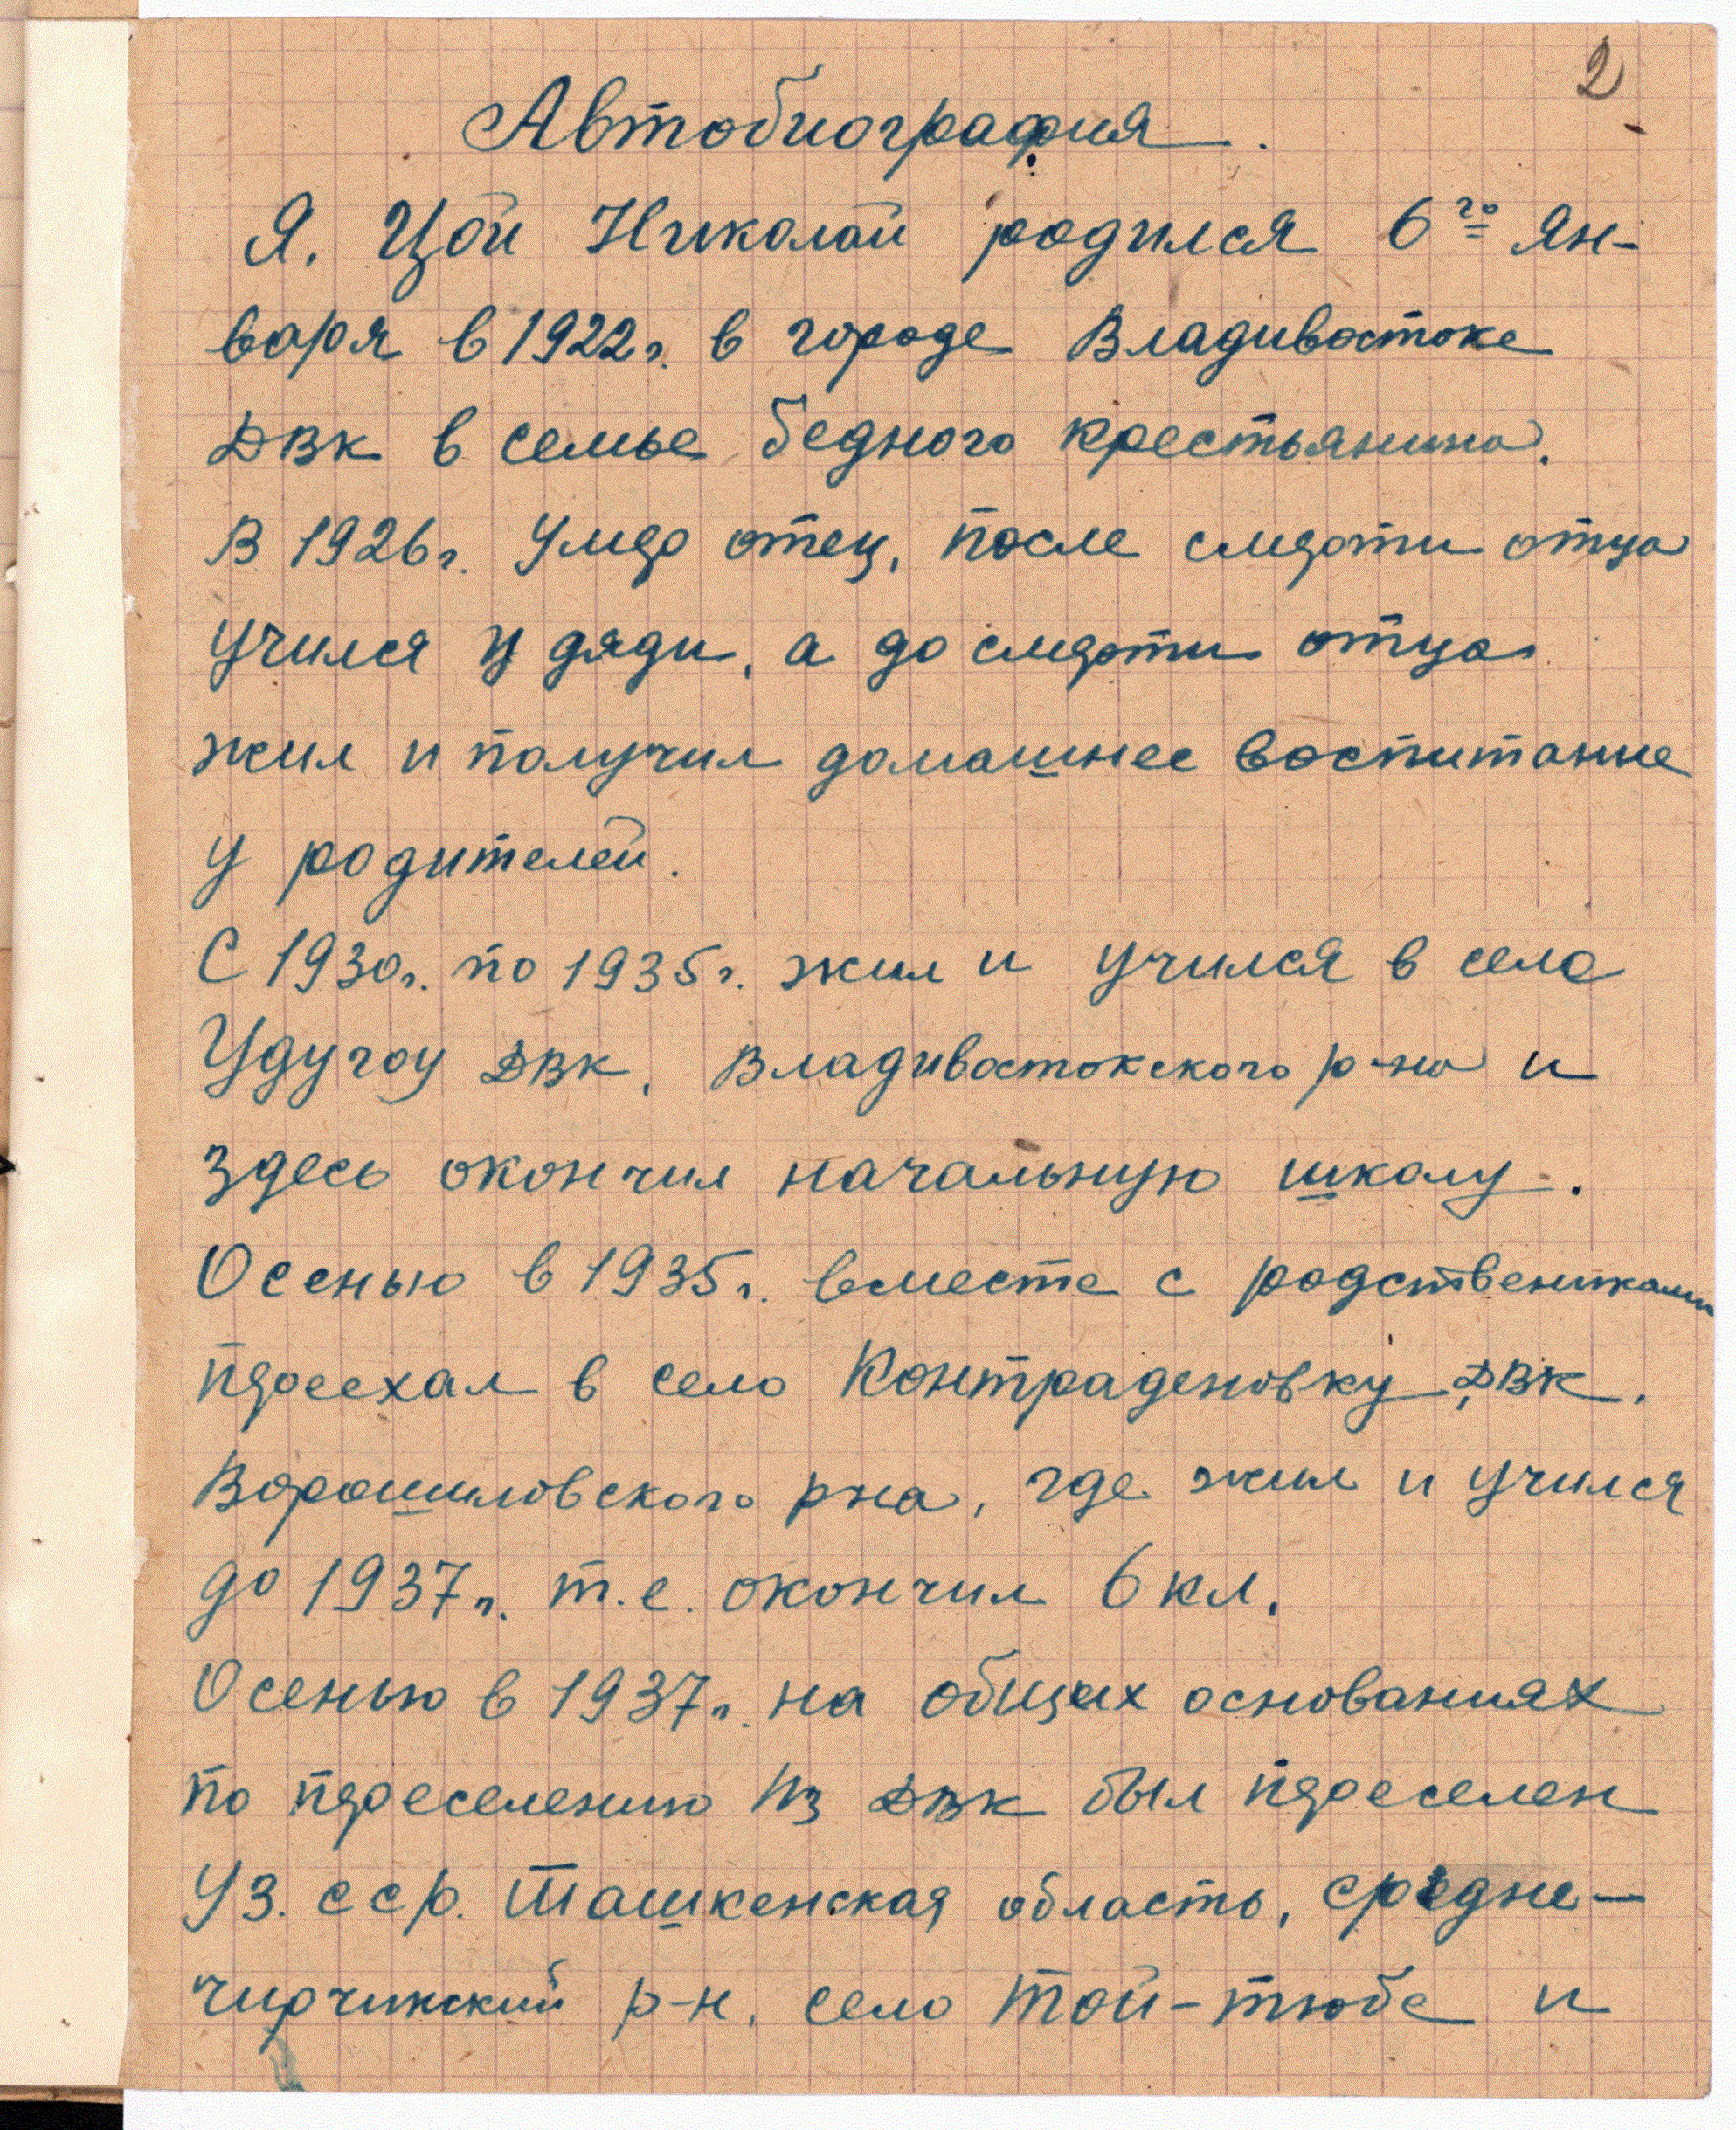 2
Автобиография.
Я. Цой Николай родился 6го ян-
варя в 1922г. в городе Владивостоке
ДВК в семье бедного крестьянина.
В 1926г. умер отец, после смерти отца
учился у дяди, а до смерти отца
жил и получил домашнее воспитание
у родителей.
С 1930г. по 1935г. жил и учился в село
Удугоу ДВК, Владивостокского р-на и
здесь окончил начальную школу.
Осенью в 1935г. вместе с родствениками
переехал в село Контраденовку, ДВК,
Ворошиловского рна, где жил и учился
до 1937г. т.е. окончил 6 кл.
Осенью в 1937г. на общих основаниях
по переселению из ДВК был переселен
Уз. сср. Ташкенская область, средне-
чирчикский р-н, село Той-тюбе и